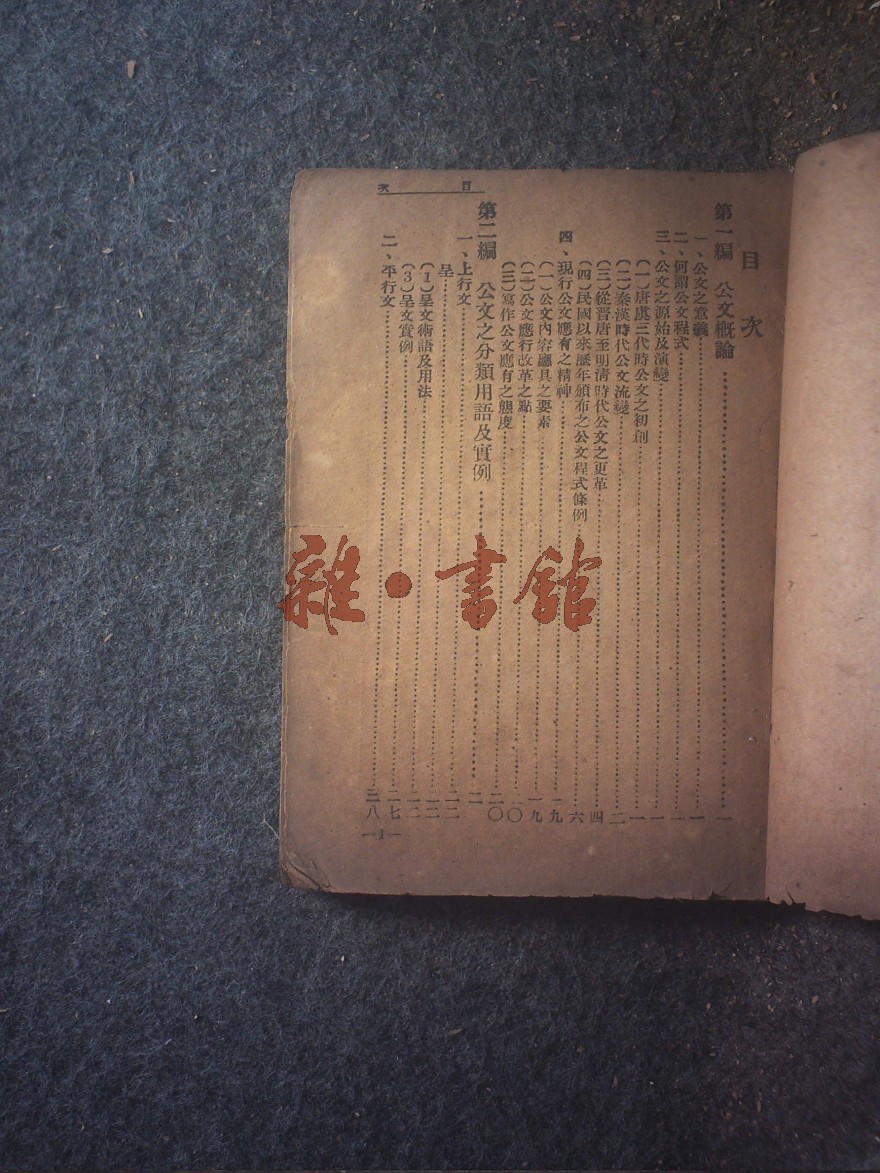 目次
第一編 公文概論……一
一、公文之意義……一
二、何謂公文程式……一
三、公文之源始及演變……一
(一)唐虞三代時公文之初創……一
(二)秦漢時代公文流變……二
(三)從晉唐至明清時代公文之更革……四
(四)民國以來歷年頒布之公文程式條例……六
四、現行公文應有之精神……九
(一)公文內容應具之要素……一九
(二)公文應行改革之點……〇
(三)寫作公文應有之態度……二〇
第二編 公文之分類用語及實例……
一、上行文……二二
呈……
(1)呈文術語及用法……二二
(3)呈文實例……二七
二、平行文……三八
目次
—1—
雜·書館